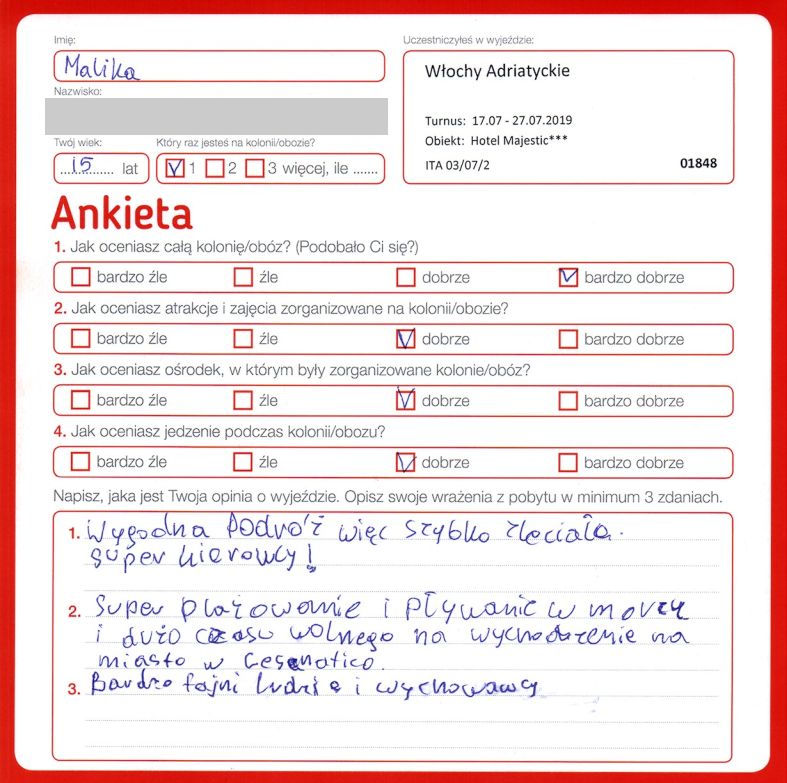 Imię:
Uczestniczyłeś w wyjeździe:
Malika
Włochy Adriatyckie
Nazwisko:
Turnus: 17.07 - 27.07.2019
Obiekt: Hotel Majestic***
Twój wiek:
Który raz jesteś na kolonii/obozie?
....15......... lat
1 2 3 więcej, ile .......
ITA 03/07/2
01848
Ankieta
1. Jak oceniasz całą kolonię/obóz? (Podobało Ci się?)
bardzo źle źle dobrze bardzo dobrze
2. Jak oceniasz atrakcje i zajęcia zorganizowane na kolonii/obozie?
bardzo źle źle dobrze bardzo dobrze
3. Jak oceniasz ośrodek, w którym były zorganizowane kolonie/obóz?
bardzo źle źle dobrze bardzo dobrze
4. Jak oceniasz jedzenie podczas kolonii/obozu?
bardzo źle źle dobrze bardzo dobrze
Napisz, jaka jest Twoja opinia o wyjeździe. Opisz swoje wrażenia z pobytu w minimum 3 zdaniach.
1. Wygodna Podró'ż więc szybko zleciała.
super kierowcy!
2. Super plażowanie i pływanie w morzu
i dużo czasu wolnego na wychodzenie na
miasto w Cesenatico.
3. Bardzo fajni ludzie i wychowawcy